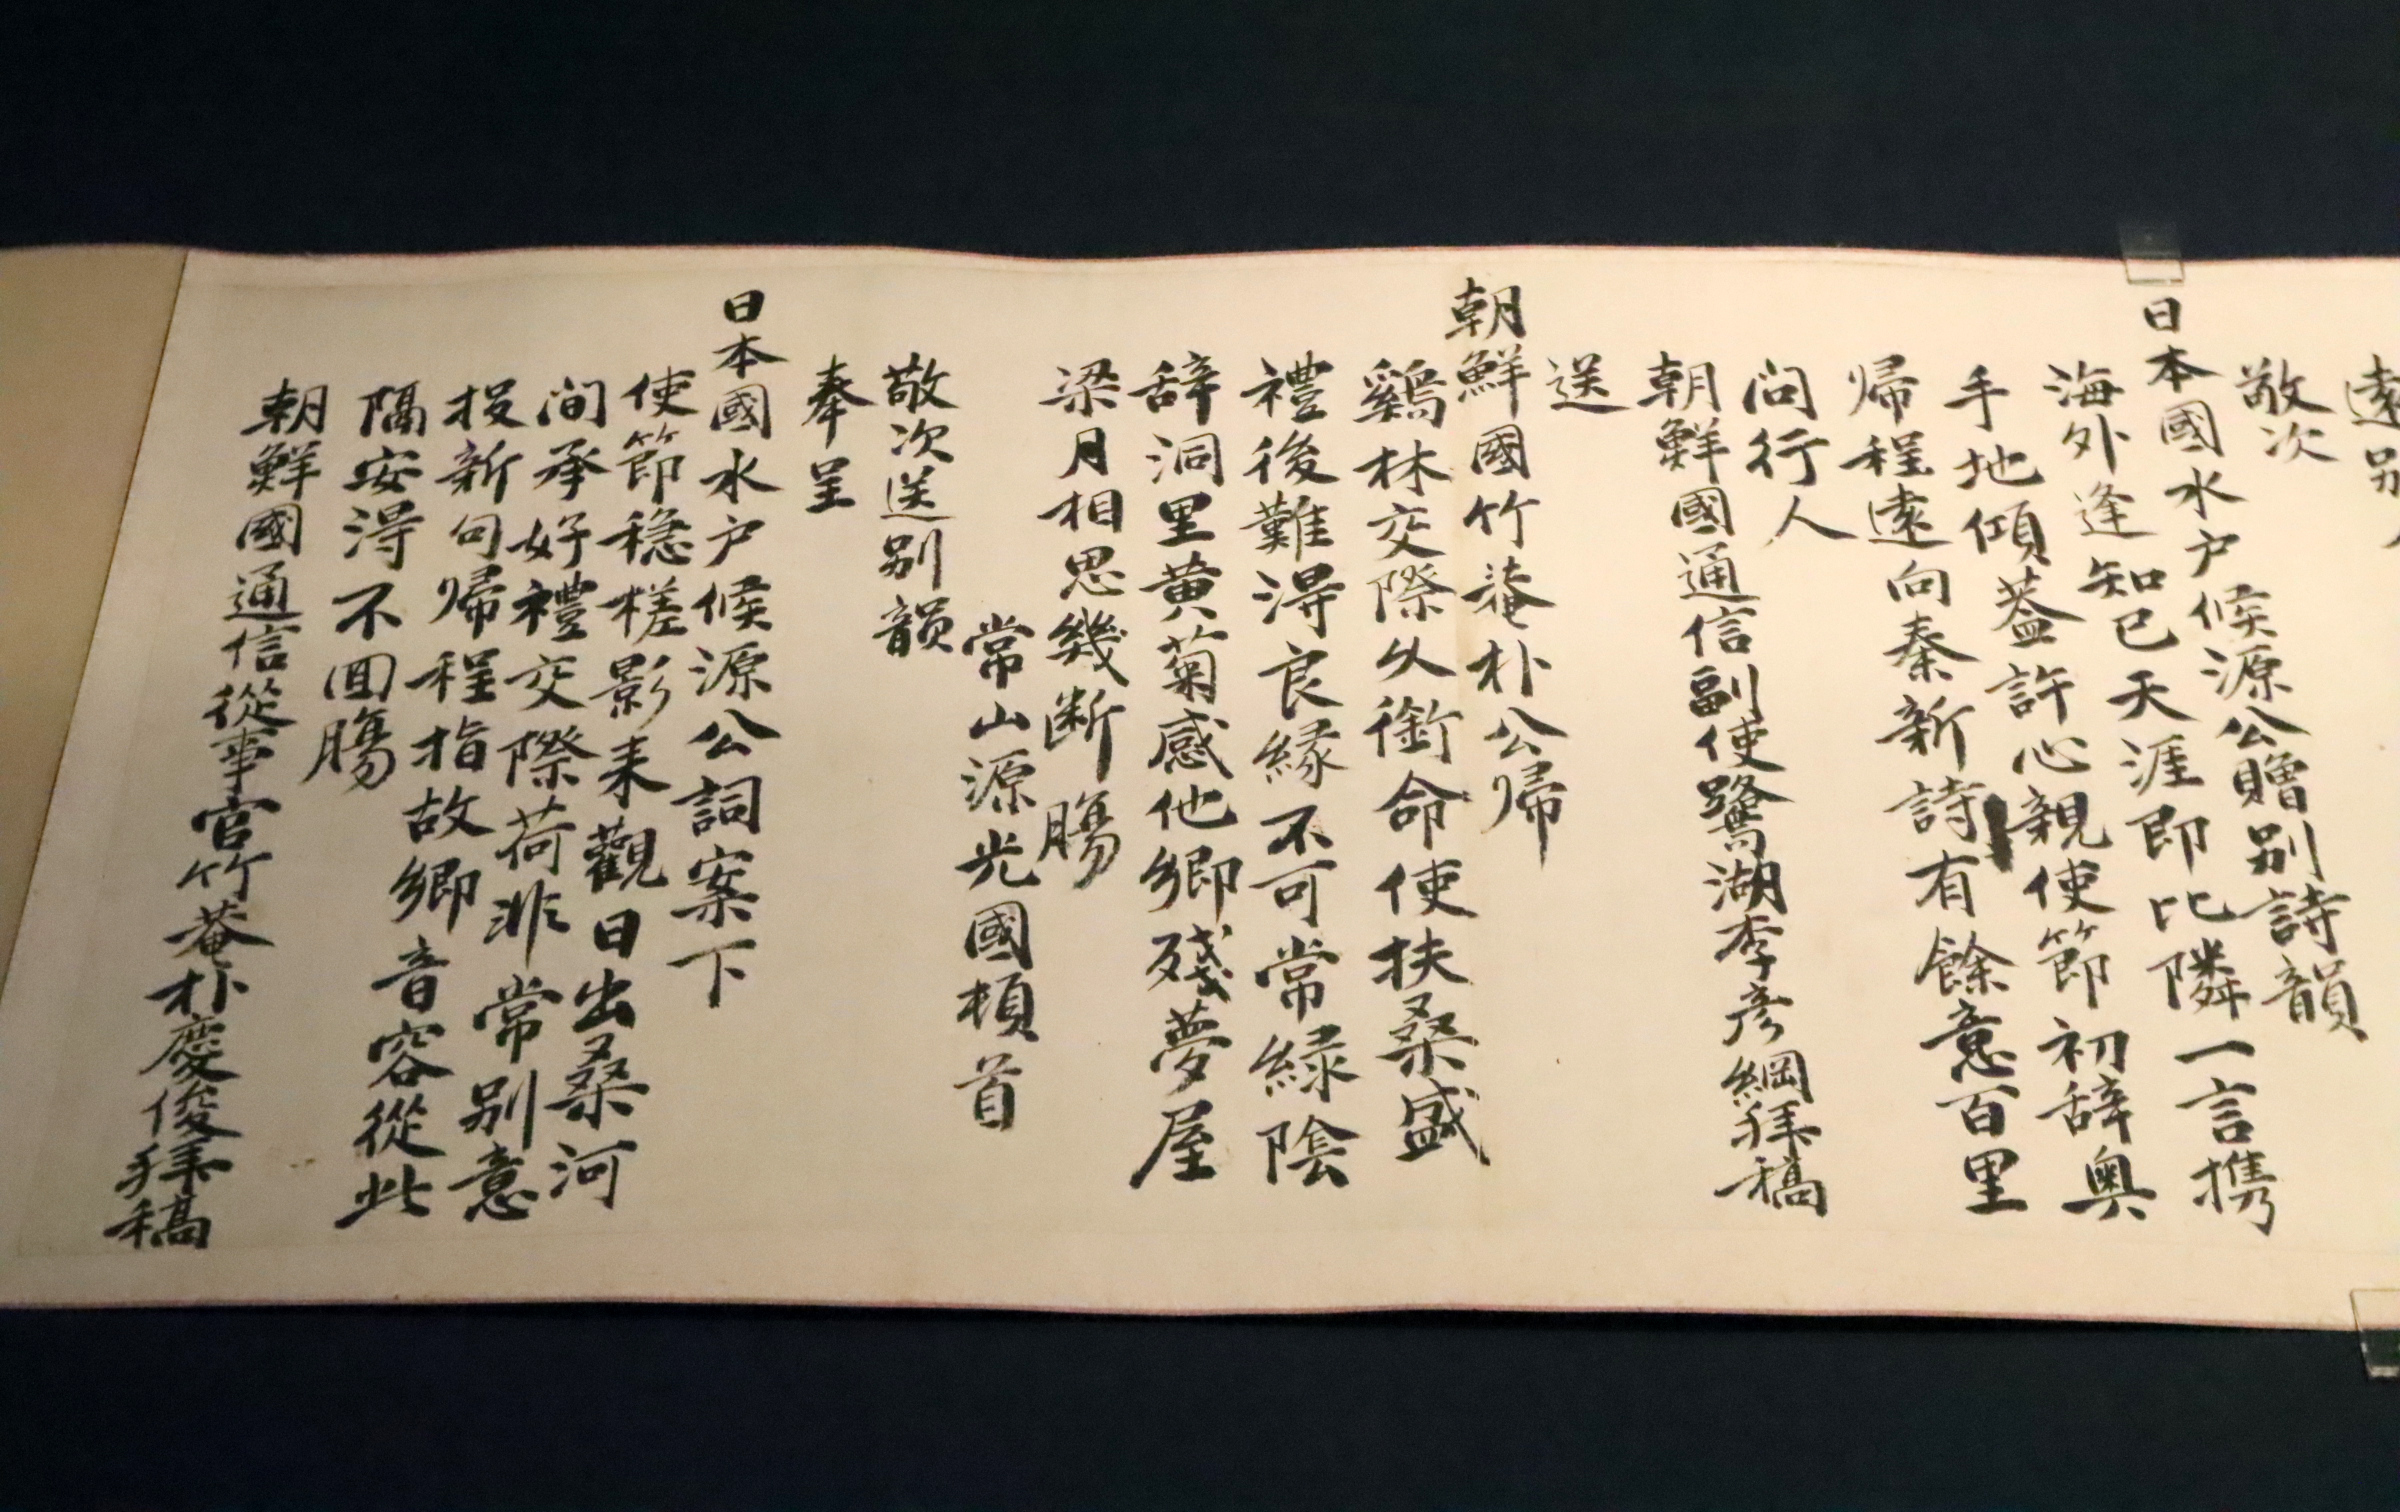 遠別
敬次
日本國水户候源公贈別詩韻
海外逢知己天涯即比隣一言携
手地傾蓋許心親使節初辞奥
帰程遠向秦新詩有餘意百里
问行人
朝鮮國通信副使鷺湖李彦綱拜稿
送
朝鮮國竹菴朴公帰
鷄林交際久銜命使扶桑盛
禮後難淂良緣不可常緑陰
辞洞里黄菊感他鄉殘夢屋
梁月相思幾断腸
常山源光國頓首
敬次送别韻
奉呈
日本國水户候源公詞案下
使節穏槎影来觀日出桑河
间承好禮交際荷非常别意
投新句帰程指故鄉音容從此
隔安淂不囬腸
朝鮮國通信從事官竹菴朴慶俊拜稿